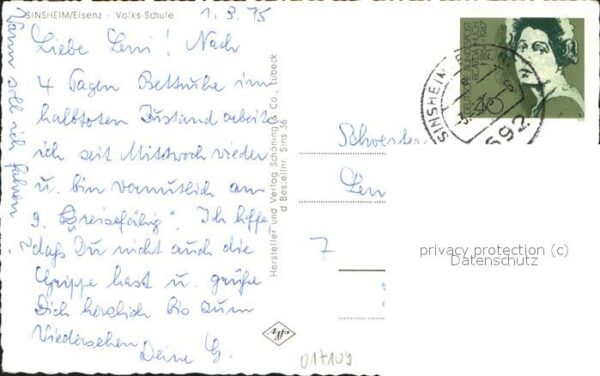 SINSHEIM/Elsenz - Volks-Schule
1.3.75
Liebe Leni! Nach
4 Tagen Bettruhe im
halbtoten Zustand arbeite
ich seit Mittwoch wieder
u. bin vermutlich am
9. "reisefähig". Ich hoffe
daß Du nicht auch die
Grippe hast u. grüße
Dich herzlich bis zum
Wiedersehen
Deine G.
Wann soll ich fahren?
Hersteller und Verlag Schöning & Co., Lübeck
Bestellnr. Sins 36
Schwester
Leni
7
40
SINSHEIM
692
privacy protection (c)
Datenschutz
01+109